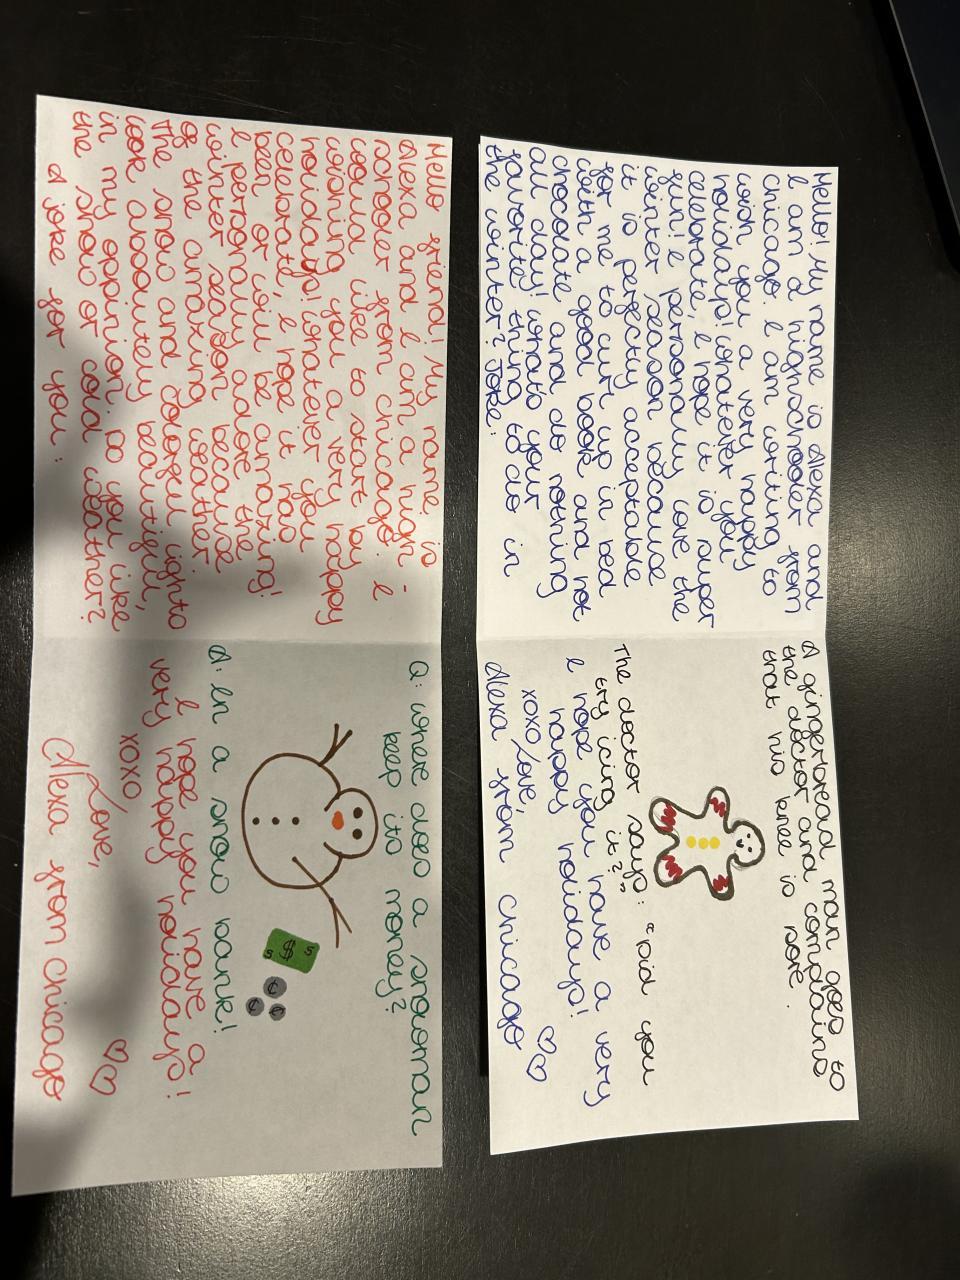 Hello! My name is Alexa and
I am a highschooler from
chicago. I am writing to
wish you a very happy
holidays! whatever you
celebrate, I hope it is super
fun! I personally love the
winter season because
it is perfectly acceptable
for me to curl up in bed
with a good book and hot
chocolate and do nothing
all day! whats your
favorite thing to do in
the winter? Joke:
A gingerbread man goes to
the doctor and complains
that his knee is sore.
The doctor says: "Did you
try icing it?"
I hope you have a very
happy holidays!
xoxo Love,
Alexa from chicago
Hello friend! My name is
Alexa and I am a high-
schooler from chicago. I
would like to start by
wishing you a very happy
holidays! whatever you
celebrate, I hope it has
been or will be amazing!
I personally adore the
winter season because
of the amazing weather.
The snow and lights
look absolutely beautiful,
in my opinion. Do you like
the snow or cold weather?
A joke for you:
Q: where does a snowman
keep its money?
$ $ $
¢
¢ ¢
A: In a snow bank!
I hope you have a
very happy holidays!
xoxo
Love,
Alexa from chicago